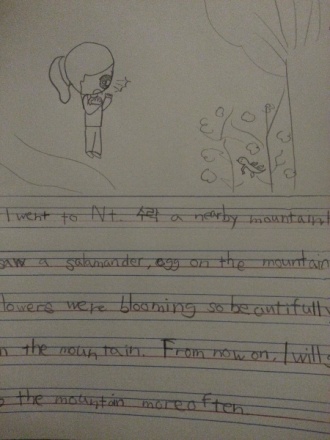 I went to Nt. 수락 a nearby mountain
saw a salamander, egg on the mountain
lowers were blooming so beautifully
n the mountain. From now on, I will g
o the mountain more often.